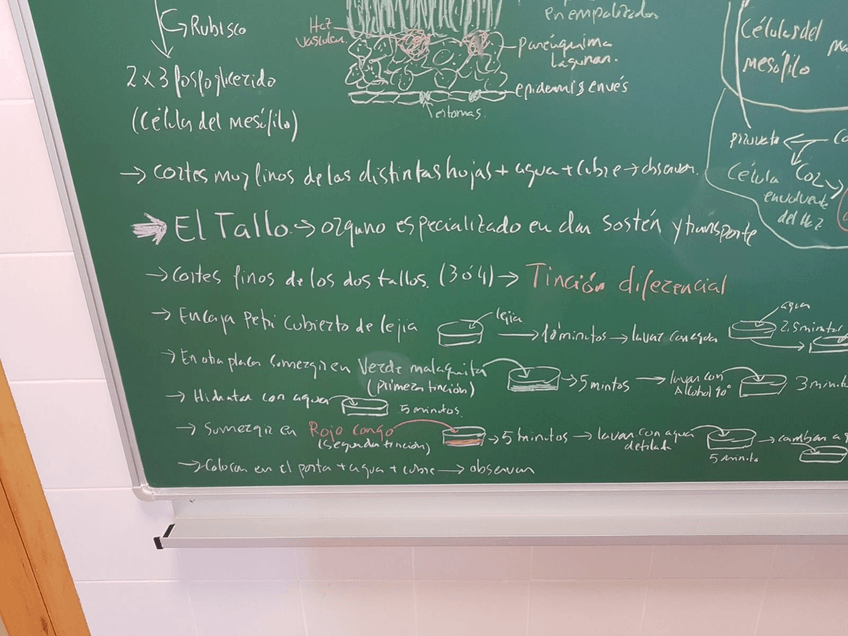 ↳ Rubisco
Hcz
vascular.
en empalizada
parénquima
lagunar.
epidermis envés
estomas.
2 x 3 fosfoglicerido
(célula del mesófilo)
Células del
mesófilo
piruvato ←
Célula
envolvente
del Hcz
CO2
→ cortes muy finos de las distintas hojas + agua + cubre → observar.
⇒ El Tallo → organo especializado en dar sostén y transporte
→ Cortes finos de los dos tallos. (3 ó 4) → Tinción diferencial
→ En caja Petri cubierto de lejía lejía → 10 minutos → lavar con agua agua 2.5 minutos
→ En otra placa sumergir en Verde malaquita → 5 mintos → lavar con Alcohol 70° 3 minuto
(primera tinción)
→ Hidratar con agua 5 minutos.
→ Sumergir en Rojo congo → 5 minutos → lavar con agua detilada 5 minuto → cambiar a
(segunda tinción)
→ Colocar en el porta + agua + cubre → observar